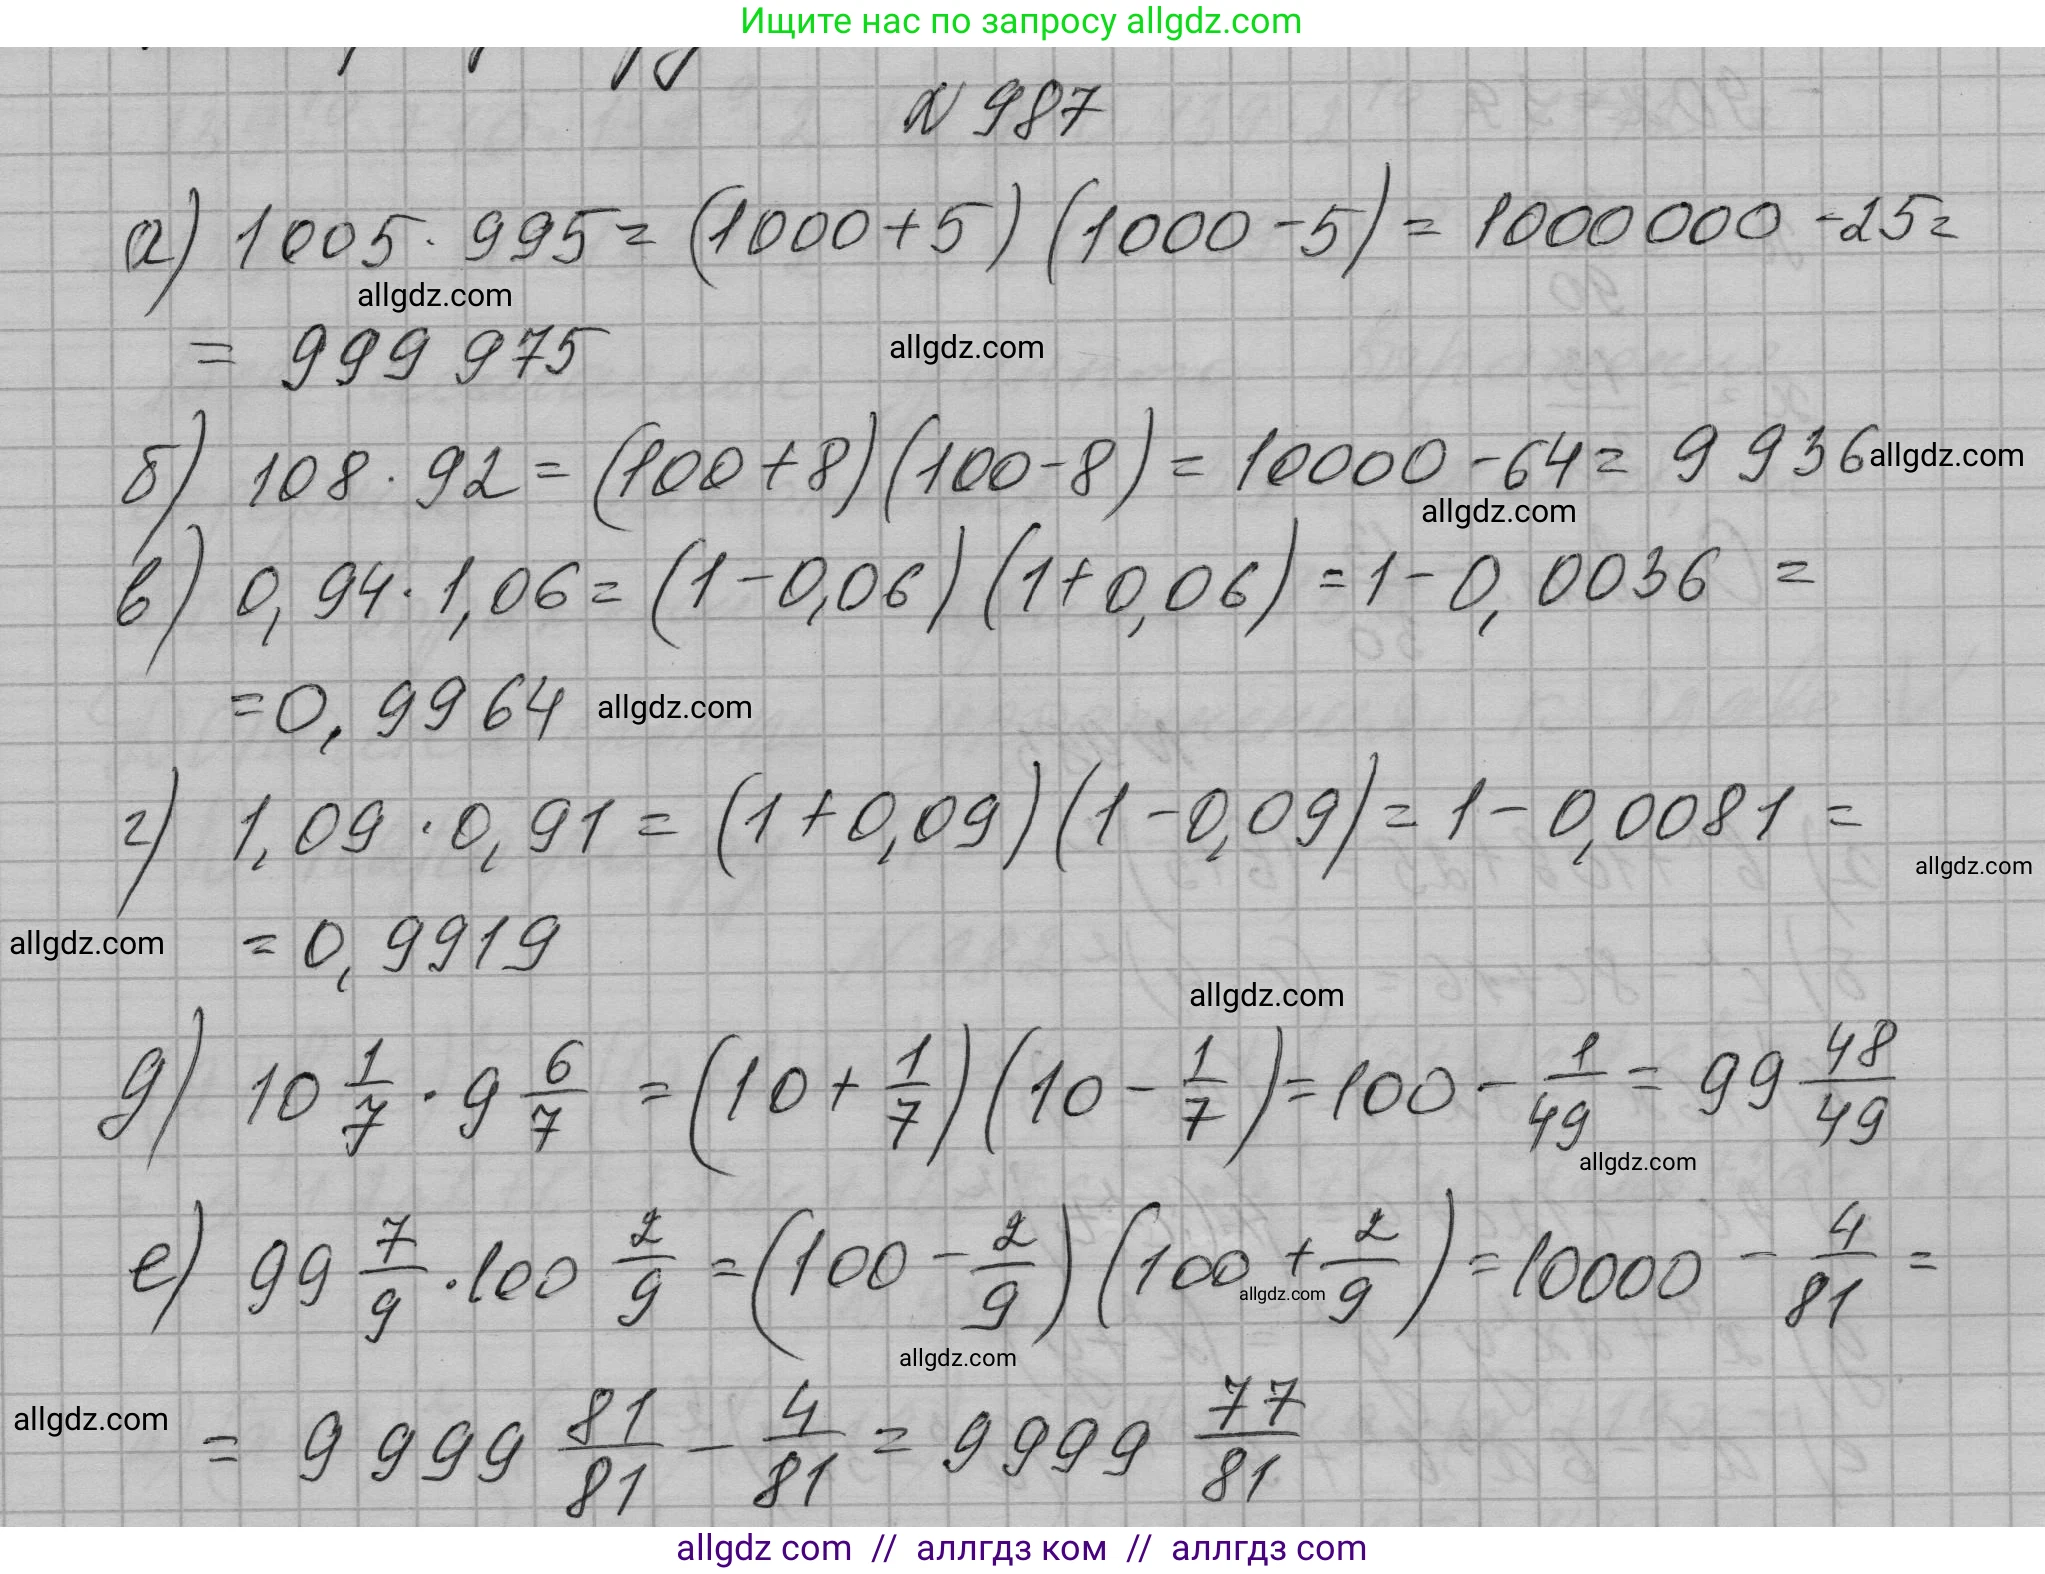 Ищите нас по запросу allgdz.com
N 987
а) 1005 · 995 = (1000 + 5) (1000 - 5) = 1000 000 - 25 =
allgdz.com
= 999 975
allgdz.com
б) 108 · 92 = (100 + 8) (100 - 8) = 10000 - 64 = 9 936
allgdz.com
allgdz.com
в) 0,94 · 1,06 = (1 - 0,06) (1 + 0,06) = 1 - 0,0036 =
= 0,9964
allgdz.com
г) 1,09 · 0,91 = (1 + 0,09) (1 - 0,09) = 1 - 0,0081 =
allgdz.com
allgdz.com
= 0,9919
allgdz.com
д) 10 1/7 · 9 6/7 = (10 + 1/7) (10 - 1/7) = 100 - 1/49 = 99 48/49
allgdz.com
е) 99 7/9 · 100 2/9 = (100 - 2/9) (100 + 2/9) = 10000 - 4/81 =
allgdz.com
allgdz.com
allgdz.com
= 9 999 81/81 - 4/81 = 9999 77/81
allgdz com // аллгдз ком // аллгдз com